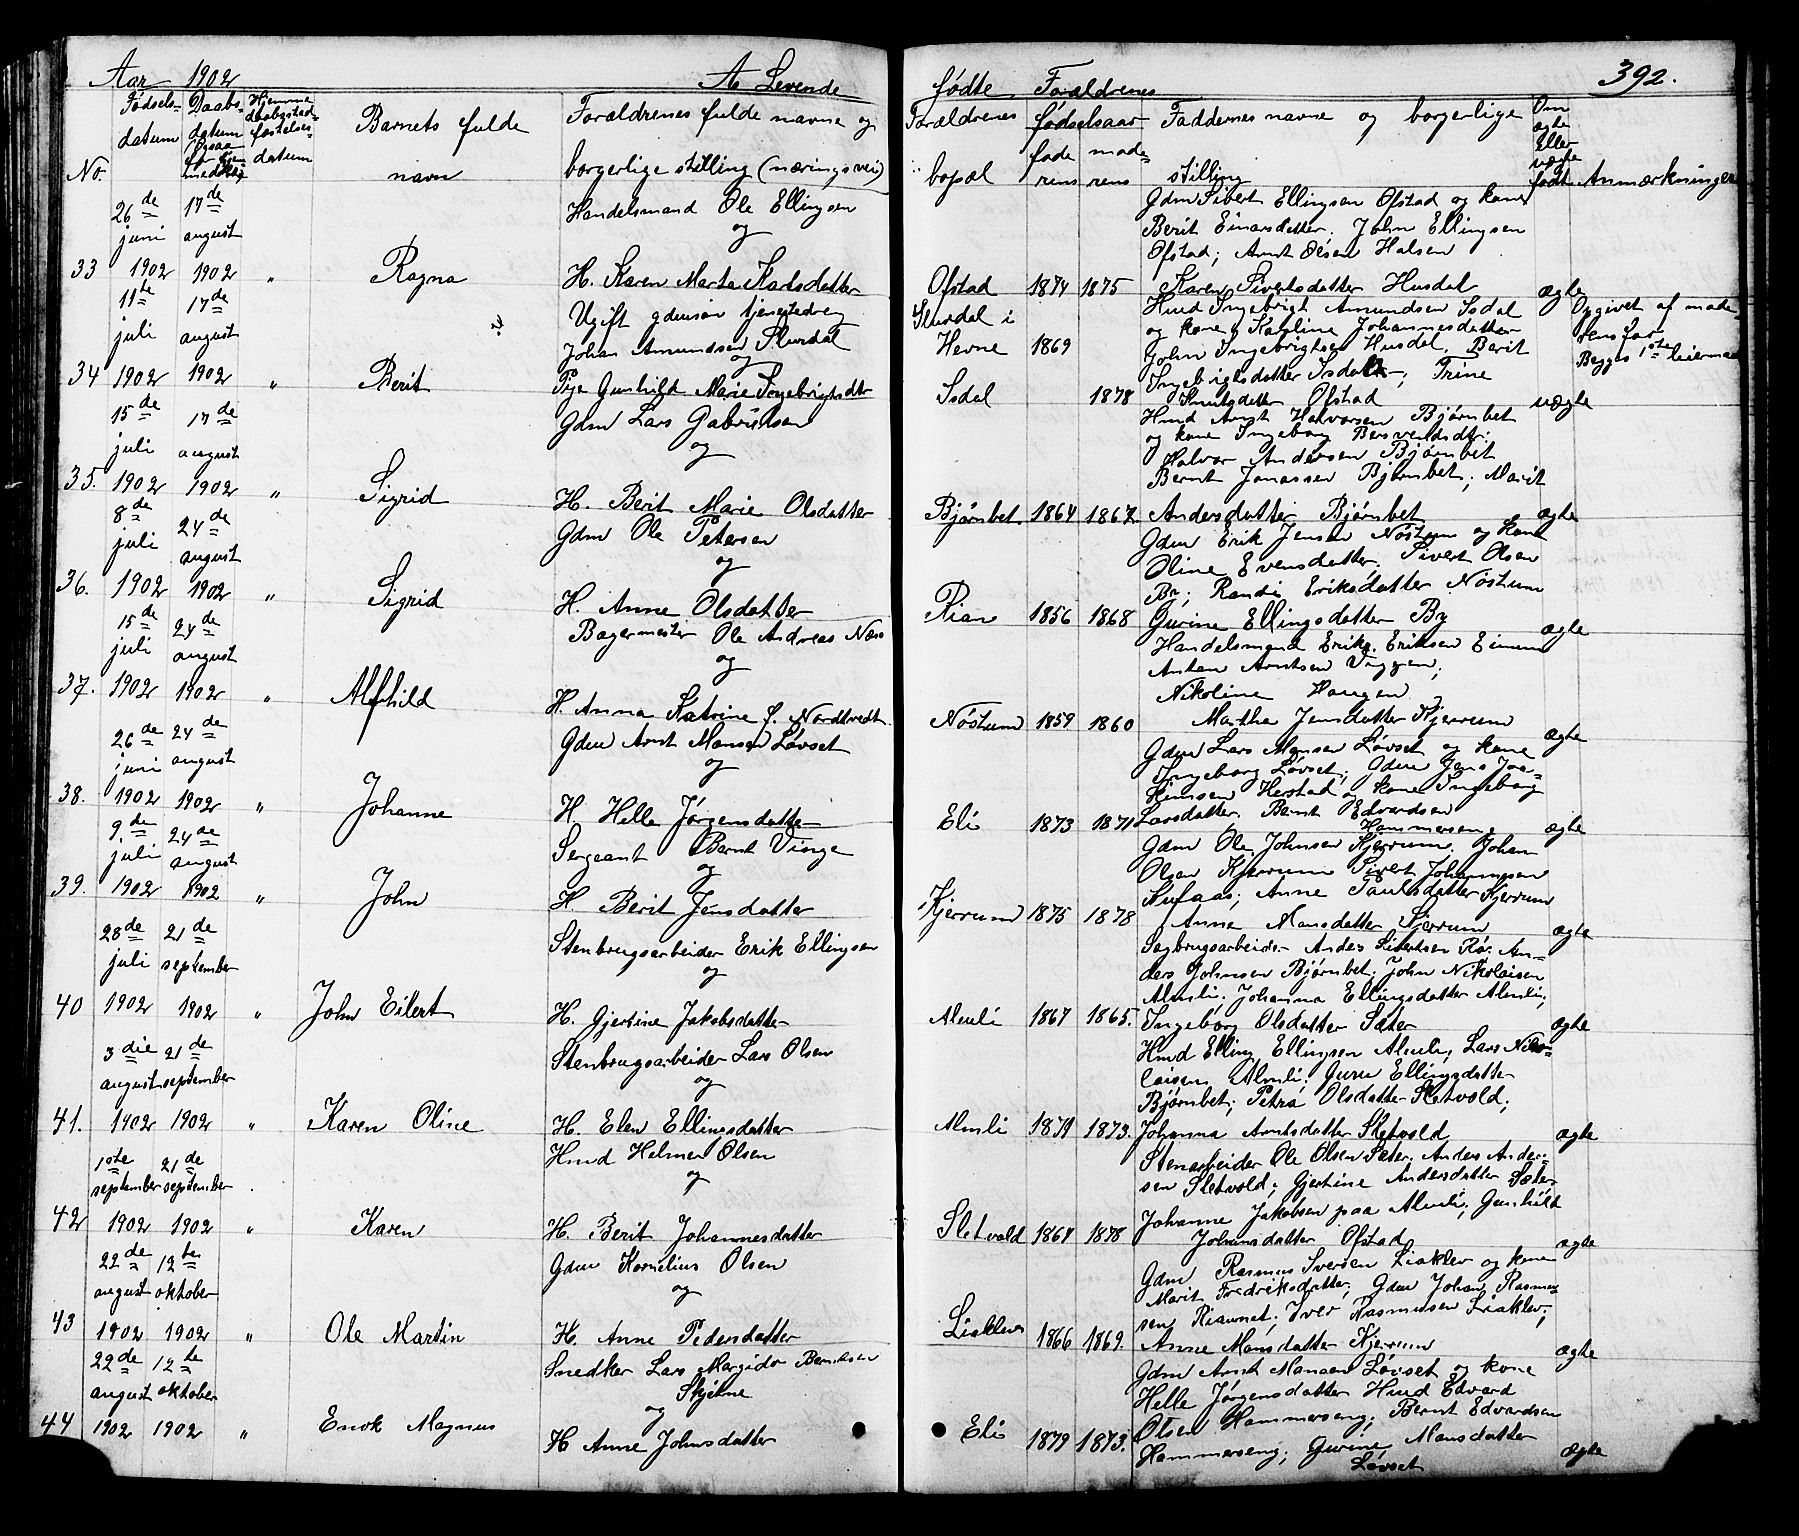 Aar 1902
A Levende
Fødsels-
datum
Daabs-
datum
Hjemme
datum
Barnets fulde
navn
Forældrenes fulde navne og
borgerlige stilling (næringsvei)
No.
26de juni 1902
17de august 1902
33
"
Ragna
Handelsmand Ole Ellingsen
og
H. Karen Marta Karlsdatter
11te juli 1902
17de august 1902
34
"
Berit
Ugift gdmsøn tjenestedreng
Johan Amundsen Slurdal
og
Pige Gunhild Marie Ingebrigtsdtr
15de juli 1902
17de august 1902
35.
"
Sigrid
Gdm Lars Gabrielsen
og
H. Berit Marie Olsdatter
8de juli 1902
24de august 1902
36.
"
Sigrid
Gdm Ole Petersen
og
H. Anne Olsdatter
15de juli 1902
24de august 1902
37.
"
Alfhild
Bagermester Ole Andreas Næss
og
H. Anna Katrine f. Nordtvedt
26de juni 1902
24de august 1902
38.
"
Johanne
Gdm Arnt Monsen Løvset
og
H. Helle Jørgensdatter
9de juli 1902
24de august 1902
39.
"
John
Sergeant Bernt Vinge
og
H Berit Jensdatter
28de juli 1902
21de september 1902
40
"
John Eilert
Stenbrugsarbeider Erik Ellingsen
og
H. Gjertine Jakobsdatter
3die august 1902
21de september 1902
41.
"
Karen Oline
Stenbrugsarbeider Lars Olsen
og
H. Elen Ellingsdatter
1ste september 1902
21de september 1902
42
"
Karen
Hmd Helmer Olsen
og
H. Berit Johannesdatter
22de august 1902
12te oktober 1902
43
"
Ole Martin
Gdm Kornelius Olsen
og
H. Anne Pedersdatter
22de august 1902
12te oktober 1902
44
"
Enok Magnus
Snedker Lars Margido Berntsen
Skjølne
og
H Anne Johnsdatter
392.
fødte
Forældrenes
bopæl
Forældrenes
fødselsaar
fade
rens
mode
rens
Faddernes navne og borgerlige
stilling
Om
ægte
Eller
uægte
født
Anmærkninger
Ofstad 1874 1875
Gdm Sivert Ellingsen Ofstad og kone
Berit Einarsdatter. John Ellingsen
Ofstad; Arnt Olsen Halsen
Karen Sivertsdatter Husdal
ægte
Slurdal i
Hevne 1869
Isdal 1878
Hmd Ingebrigt Amundsen Isdal
og kone Karoline Johannesdatter
John Ingebrigtsen Husdal. Berit
Ingebrigtsdatter Isdal; Trine
Knutsdatter Ofstad
uægte
Opgivet af mode-
rens far
Begges 1ste leiermaal
Bjørnbet 1864 1867.
Hmd Arnt Halvorsen Bjørnbet
og kone Ingeborg Bersvendsdtr:
Halvor Andersen Bjørnbet
Bernt Jonassen Bjørnbet; Marit
Andersdatter Bjørnbet
ægte
Rian 1856 1868
Gdm Erik Jensen Nöstum og kone
Oline Evensdatter. Sivert Olsen
By; Randi Eriksdatter Nöstum
Gurine Ellingsdatter By
ægte
Nöstum 1859 1860
Handelsmand Erik Eriksen Eimem
Anton Arntsen Viggen;
Nikoline Haugen
Martha Jensdatter Kjerrum
ægte
Eli 1873 1871
Gdm Lars Monsen Løvset og kone
Ingeborg Løvset; Gdm Jens Joa-
kimsen Herstad og kone Ingeborg
Larsdatter, Bernt Edvardsen
Hammerseng.
ægte
Kjerrum 1875 1878
Gdm Ole Johnsen Kjerrum. Johan
Olsen Kjerrum Sivert Johannesen
Nufaas; Anne Paulsdatter Kjerrum
Anne Monsdatter Kjerrum
ægte
Almli 1867 1865.
Sagbrugsarbeider Anders Sivertsen Rör; An-
ders Johnsen Bjørnbet; John Nikolaisen
Almli; Johanna Ellingsdatter Almli;
Ingeborg Olsdatter Sæter
ægte
Almli 1879 1873.
Hmd Elling Ellingsen Almli; Lars Niko-
laisen Almli; Guru Ellingsdatter
Bjørnbet; Petra Olsdatter Sletvold;
Johanna Arntsdatter Sletvold
ægte
Sletvold 1864 1878
Stenarbeider Ole Olsen Sæter. Anders Ander-
sen Sletvold; Gjertine Andersdatter Sæter
Johanne Jakobsen paa Almli; Gunhild
Johansdatter Ofstad
ægte
Liaklev 1866 1869.
Gdm Rasmus Iversen Liaklev og kone
Marit Fredriksdatter; Gdm Johan Rasmus-
sen Riaunet; Iver Rasmussen Liaklev;
Anne Monsdatter Kjerrum
ægte
Eli 1879 1873.
Gdm Arnt Monsen Løvset og kone
Helle Jørgensdatter Hmd Edvard
Olsen Hammerseng; Bernt Edvardsen
Hammerseng; Gurine Monsdatter
Løvset
ægte